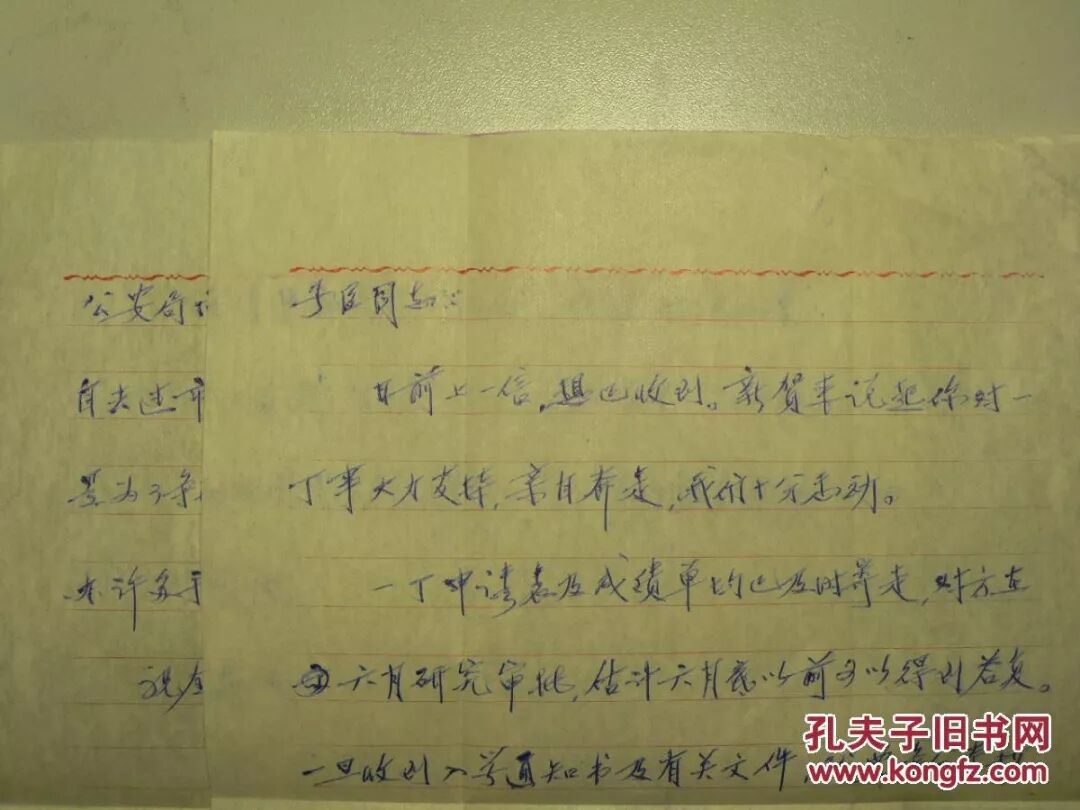 公安局
同志:
日前上一信,想已收到。新贺来说起你对一
丁事大力支持,亲自奔走,我们十分感动。
一丁申请表及成绩单均已及时寄走,对方在
六月研究审批,估计六月底以前可以得到答复。
一旦收到入学通知书及有关文件,
自去
景为
办许多手
祝全
孔夫子旧书网
www.kongfz.com